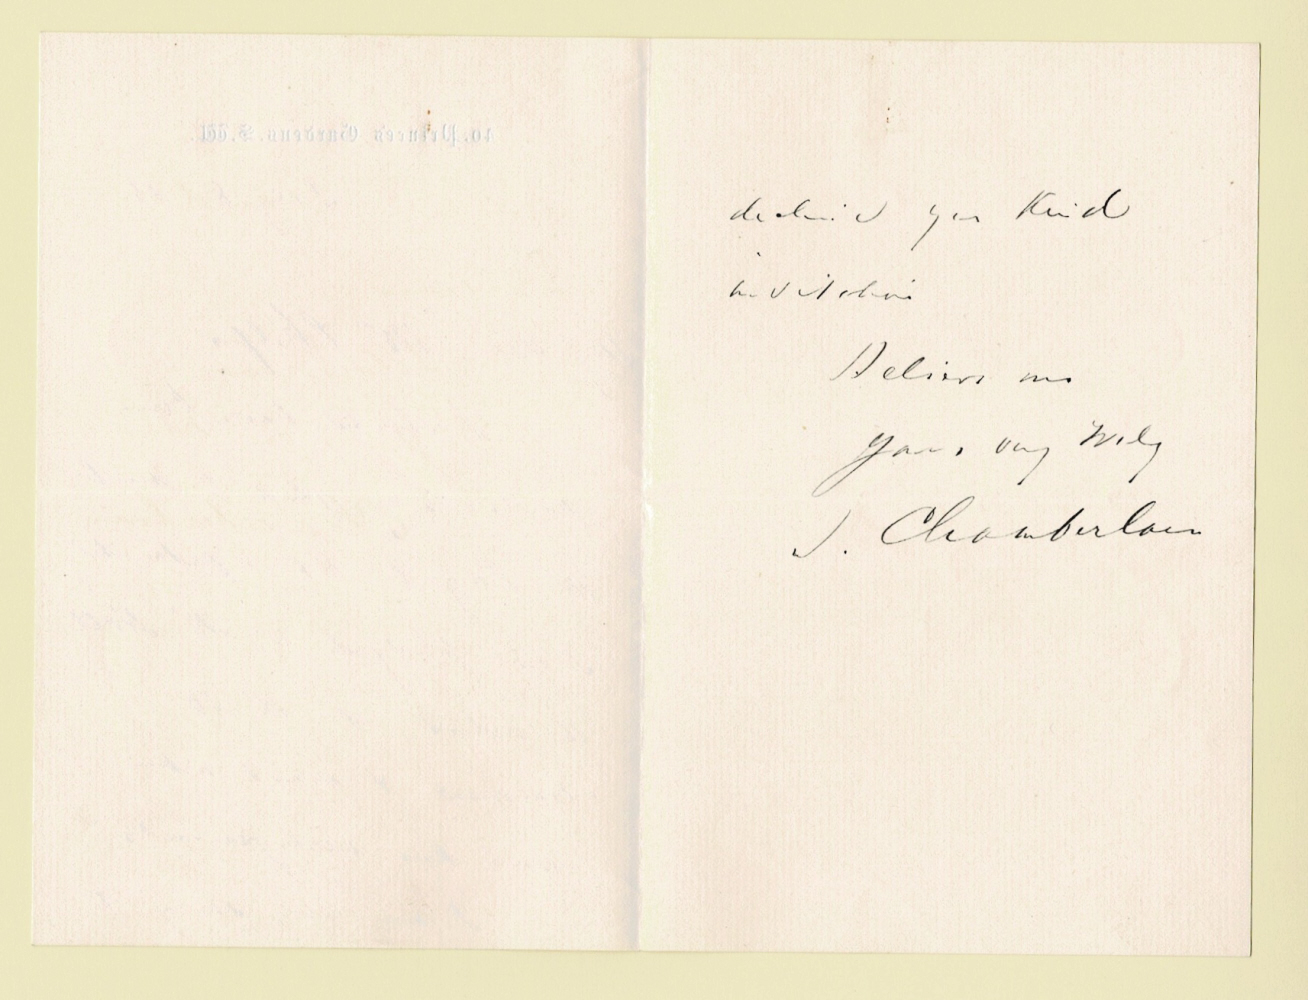 40, Princes Gardens, S.W.
declined your kind
invitation
Believe me
yours very truly
J. Chamberlain